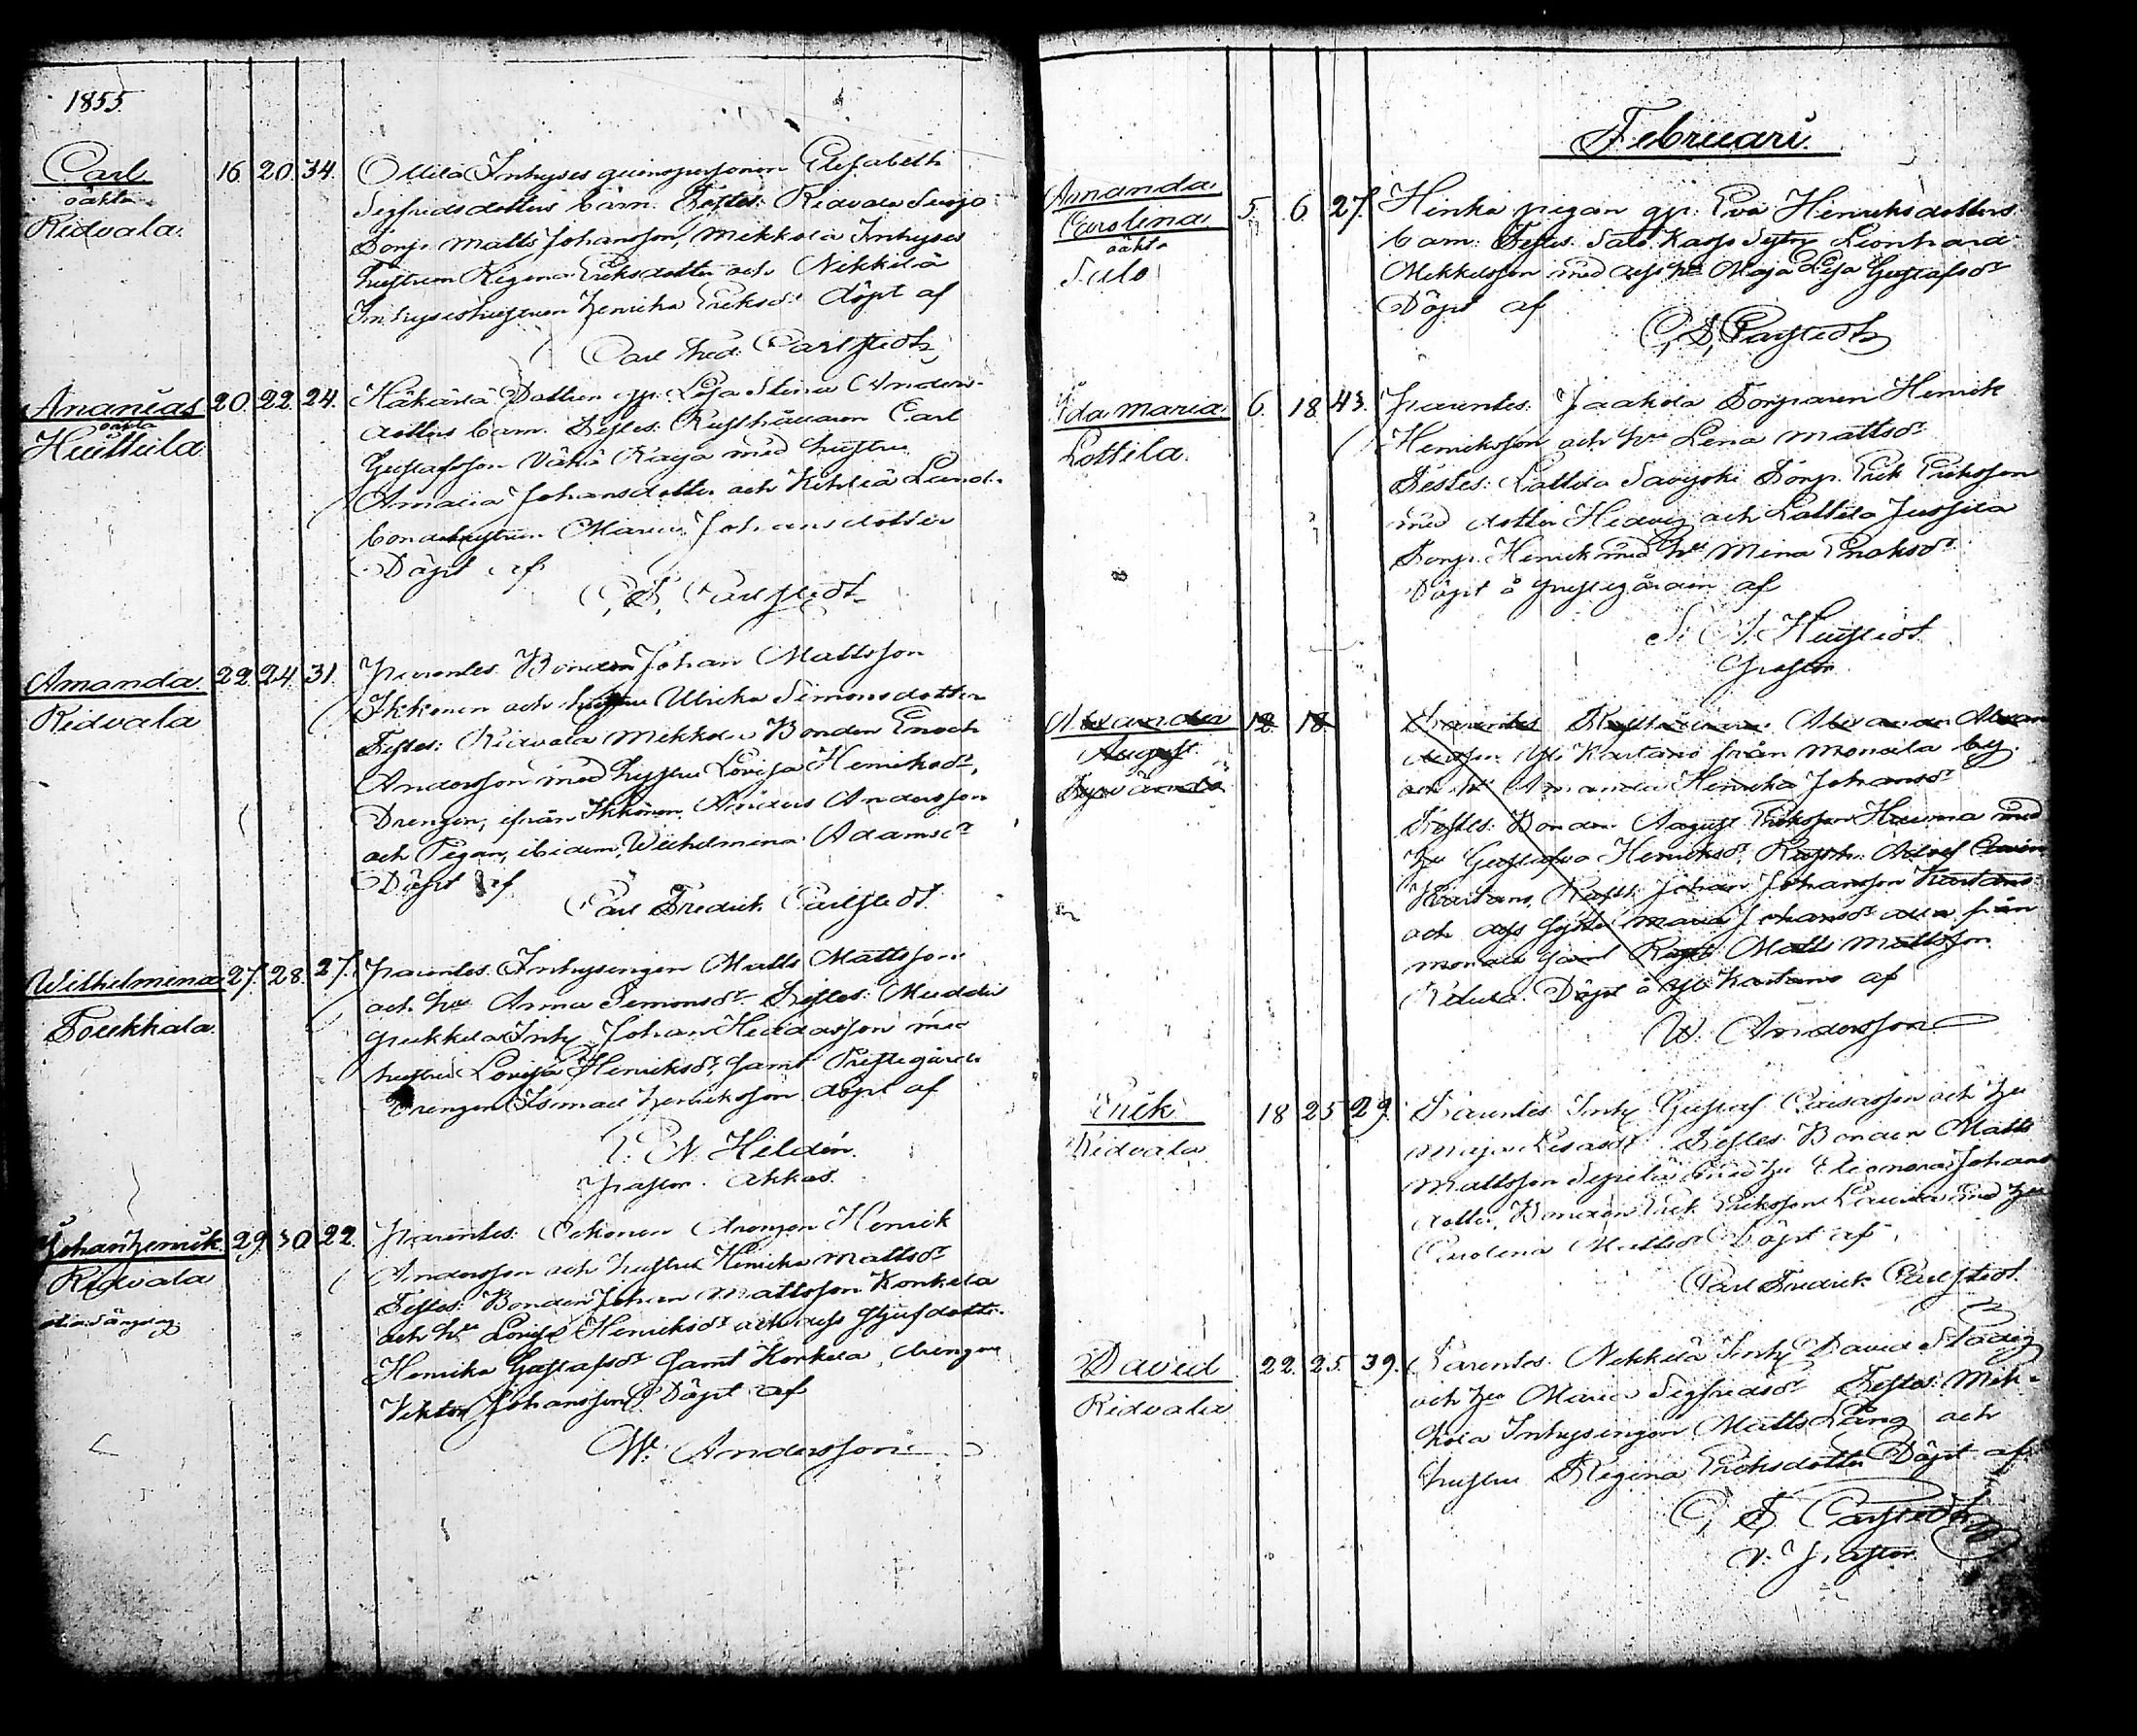 1855
Carl 16. 20. 34. Ollila Inhyses qvinspersonen Elisabeth
oäkta Segfridsdotters barn. Testes: Ridvala
Ridvala. Torp. Matts Johansson, Mikkola Inhyses
hustrun Regina Eriksdotter och Nikkilä
Inhyseshustrun Henrika Eriksdr. döpt af
Carl Fred. Carlstedt
Ananias 20. 22. 24. Dottren qp. Lisa Stina Anders-
oäkta dotters barn. Testes. Rusthållaren Carl
Huittula Gustafsson Vähä Raija med hustru
Amalia Johansdotter och Land-
bondehustrun Maria Johansdotter
Döpt af
C. F. Carlstedt
Amanda. 22. 24. 31. Parentes Bonden Johan Mattsson
Ridvala Ikkonen och hustru Ulrika Simonsdotter
Testes: Ridvala Mikkola Bonden Enoch
Andersson med hustru Lovisa Henriksdr,
Drengen, ifrån Ikkonen Anders Andersson
och Pigan, ibidem, Wilhelmina Adamsdr
Döpt af
Carl Fredrik Carlstedt.
Wilhelmina 27. 28. 27. Parentes. Inhysingen Matts Mattsson
och hu Anna Simonsdr. Testes:
Toukkala. Inh. Johan med
hustru Lovisa Henriksdr, samt Prestegårds
Drengen Ismael Henriksson döpt af
C. N. Hildén.
Pastor. Akkas.
Johan Henrik 29. 30. 22. Parentes: drengen Henrik
Ridvala Andersson och hustru Henrika Mattsdr
Testes: Bonden Johan Mattsson Konkola
och hu Lovisa Henriksdr och dess styfdotter
Henrika Gustafsdr samt Konkola drengen
Viktor Johansson Döpt af
W. Andersson
Februari.
Amanda
Carolina 5. 6. 27. Hinka pigan qp. Eva Henriksdotters
oäkta barn. Testes. Salo Leonhard
Salo Mikkelsson med dess hu Maja Lisa Gustafsdr
Döpt af
C. F. Carlstedt
Ida Maria. 6. 18 43. Parentes. Jaakola Torparen Henrik
Lottila. Henriksson och hu Lena Mattsdr
Testes: Lottila Savijoki Torp. Erik Eriksson
med dotter Hedvig och Lottila Jussila
Torp. Henrik med hu Mina Enoksdr
Döpt å Prestegården af
Pastor.
Alexander 12. 18. Parentes Rusthållaren Alexander Alexan-
August dersson Yli Kartano från Monaila by
och hu Amanda Henrika Johansdr
Testes. Bonden August Eriksson med
hu Gustafva Henriksdr. Rusth. Adolf
Kartano, Rusth. Johan Johansson Kartano
och dess syster Maria Johansdr alla från
Monaila samt Rusth. Matts Mattsson
Döpt å Yli Kartano af
W. Andersson
Erik 18 25 29. Parentes Inh. Gustaf och hu
Ridvala Maja Testes. Bonden Matts
Mattsson Seppälä med hu Eleonora Johans
dotter, Bonden Erik Eriksson med hu
Carolina Mattsdr Döpt af
Carl Fredrik Carlstedt.
David 22. 25. 39. Parentes. Nikkilä Inh. David
Ridvala och hu Maria Segfridsdr Testes: Mik-
kola Inhysingen Matts Lång och
hustru Regina Eriksdotter Döpt af
C. F. Carlstedt
v. Pastor